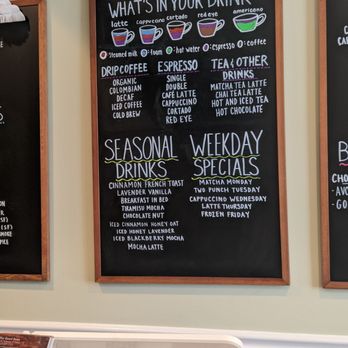 WHAT'S IN YOUR DRINK
latte
cappuccino
cortado
red eye
americano
:steamed milk
:foam
:hot water
:espresso
:coffee
DRIP COFFEE
ORGANIC
COLOMBIAN
DECAF
ICED COFFEE
COLD BREW
ESPRESSO
SINGLE
DOUBLE
CAFE LATTE
CAPPUCCINO
CORTADO
RED EYE
TEA & OTHER
DRINKS
MATCHA TEA LATTE
CHAI TEA LATTE
HOT AND ICED TEA
HOT CHOCOLATE
SEASONAL
DRINKS
CINNAMON FRENCH TOAST
LAVENDER VANILLA
BREAKFAST IN BED
TIRAMISU MOCHA
CHOCOLATE NUT
ICED CINNAMON HONEY OAT
ICED HONEY LAVENDER
ICED BLACKBERRY MOCHA
MOCHA LATTE
WEEKDAY
SPECIALS
MATCHA MONDAY
TWO PUNCH TUESDAY
CAPPUCCINO WEDNESDAY
LATTE THURSDAY
FROZEN FRIDAY
B
CHO
- AVO
- GO